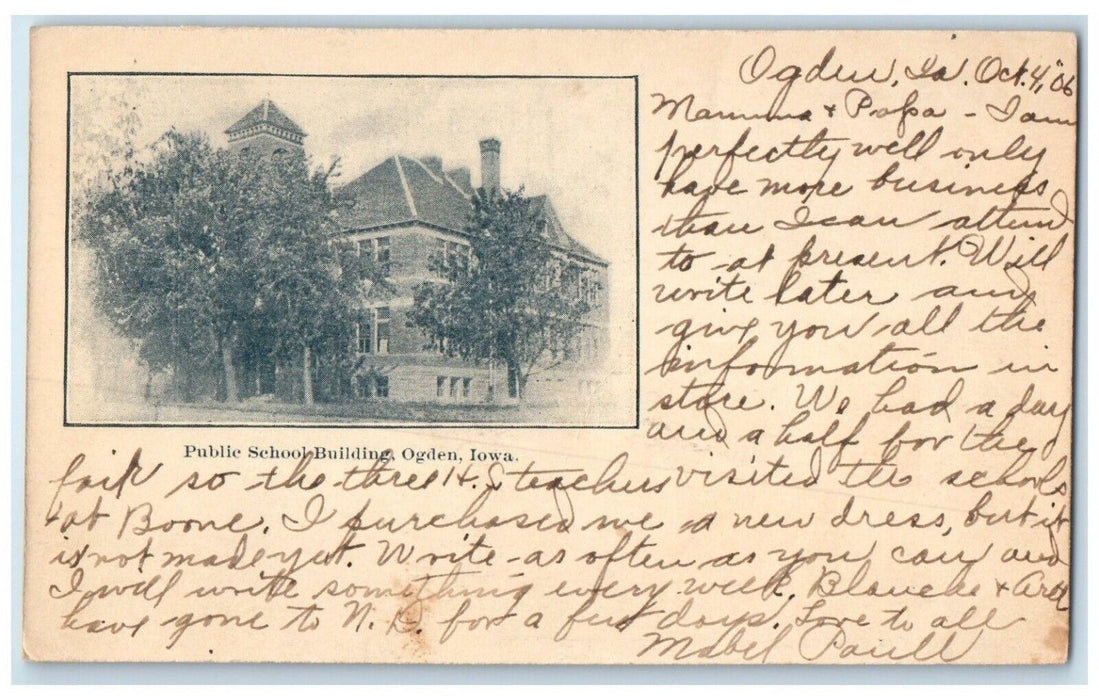 Ogden, Ia. Oct. 4, '06
Mamma & Papa - I am
perfectly well only
have more business
than I can attend
to at present. Will
write later and
give you all the
information in
store. We had a day
and a half for the
Public School Building, Ogden, Iowa.
fair so the three H. S teachers visited the schools
at Boone. I purchased me a new dress, but it
is not made yet. Write as often as you can and
I will write something every week. Blanche &
have gone to N. D. for a few days. Love to all
Mabel Paull